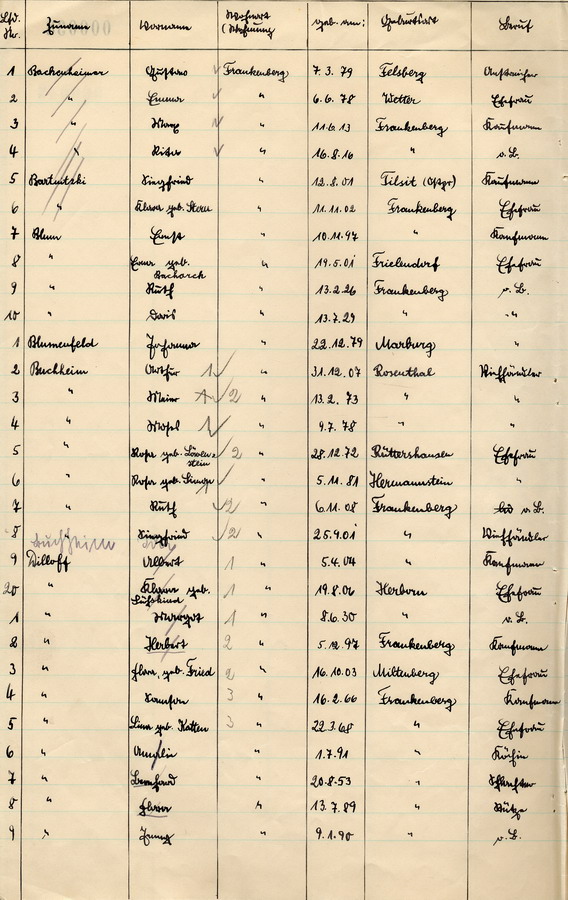 Lfd. Nr. Zuname Vorname Wohnort (Wohnung geb. am: Geburtsort Beruf
1 Bachenheimer Gustav Frankenberg 7.3.79 Felsberg
2 " Emma " 6.6.78 Wetter Ehefrau
3 " Max " 11.6.13 Frankenberg Kaufmann
4 " " 16.8.16 o.B.
5 Bartnitzki Siegfried " 12.8.01 Tilsit (Ostpr) Kaufmann
6 " Klara geb. Stern " 11.11.02 Frankenberg Ehefrau
7 Blum Ernst " 10.11.97 " Kaufmann
8 " Erna geb. Bachrach " 19.5.01 Frielendorf Ehefrau
9 " Ruth " 13.2.26 Frankenberg o.B.
10 " Doris " 13.7.29 " "
1 Blumenfeld Johanna " 22.12.79 Marburg "
2 Buchheim Arthur 1 " 31.12.07 Rosenthal Viehhändler
3 " Meier 2 " 13.2.73 " "
4 " Moses 1 " 9.7.78 " "
5 " Rosa geb. Löwenstein 2 " 28.12.72 Rüttershausen Ehefrau
6 " Rosa geb. " 5.11.81 Hermannstein "
7 " Ruth 2 " 6.11.08 Frankenberg o.B.
8 Buchheim Siegfried 2 " 25.9.01 " Viehhändler
9 Dilloff Albert 1 " 5.4.04 " Kaufmann
20 " Klara geb. Luftkind 1 " 19.8.06 Herborn Ehefrau
1 " Margot 1 " 8.6.30 " o.B.
2 " Herbert 2 " 5.12.97 Frankenberg Kaufmann
3 " Flora, geb. Fried 2 " 16.10.03 Miltenberg Ehefrau
4 " Samson 3 " 16.2.66 Frankenberg Kaufmann
5 " Lina geb. Katten 3 " 22.3.68 " Ehefrau
6 " Amalie " 1.7.91 " Köchin
7 " Bernhard " 20.8.53 "
8 " Flora " 13.7.89 " Stütze
9 " Jenny " 9.1.90 " o.B.